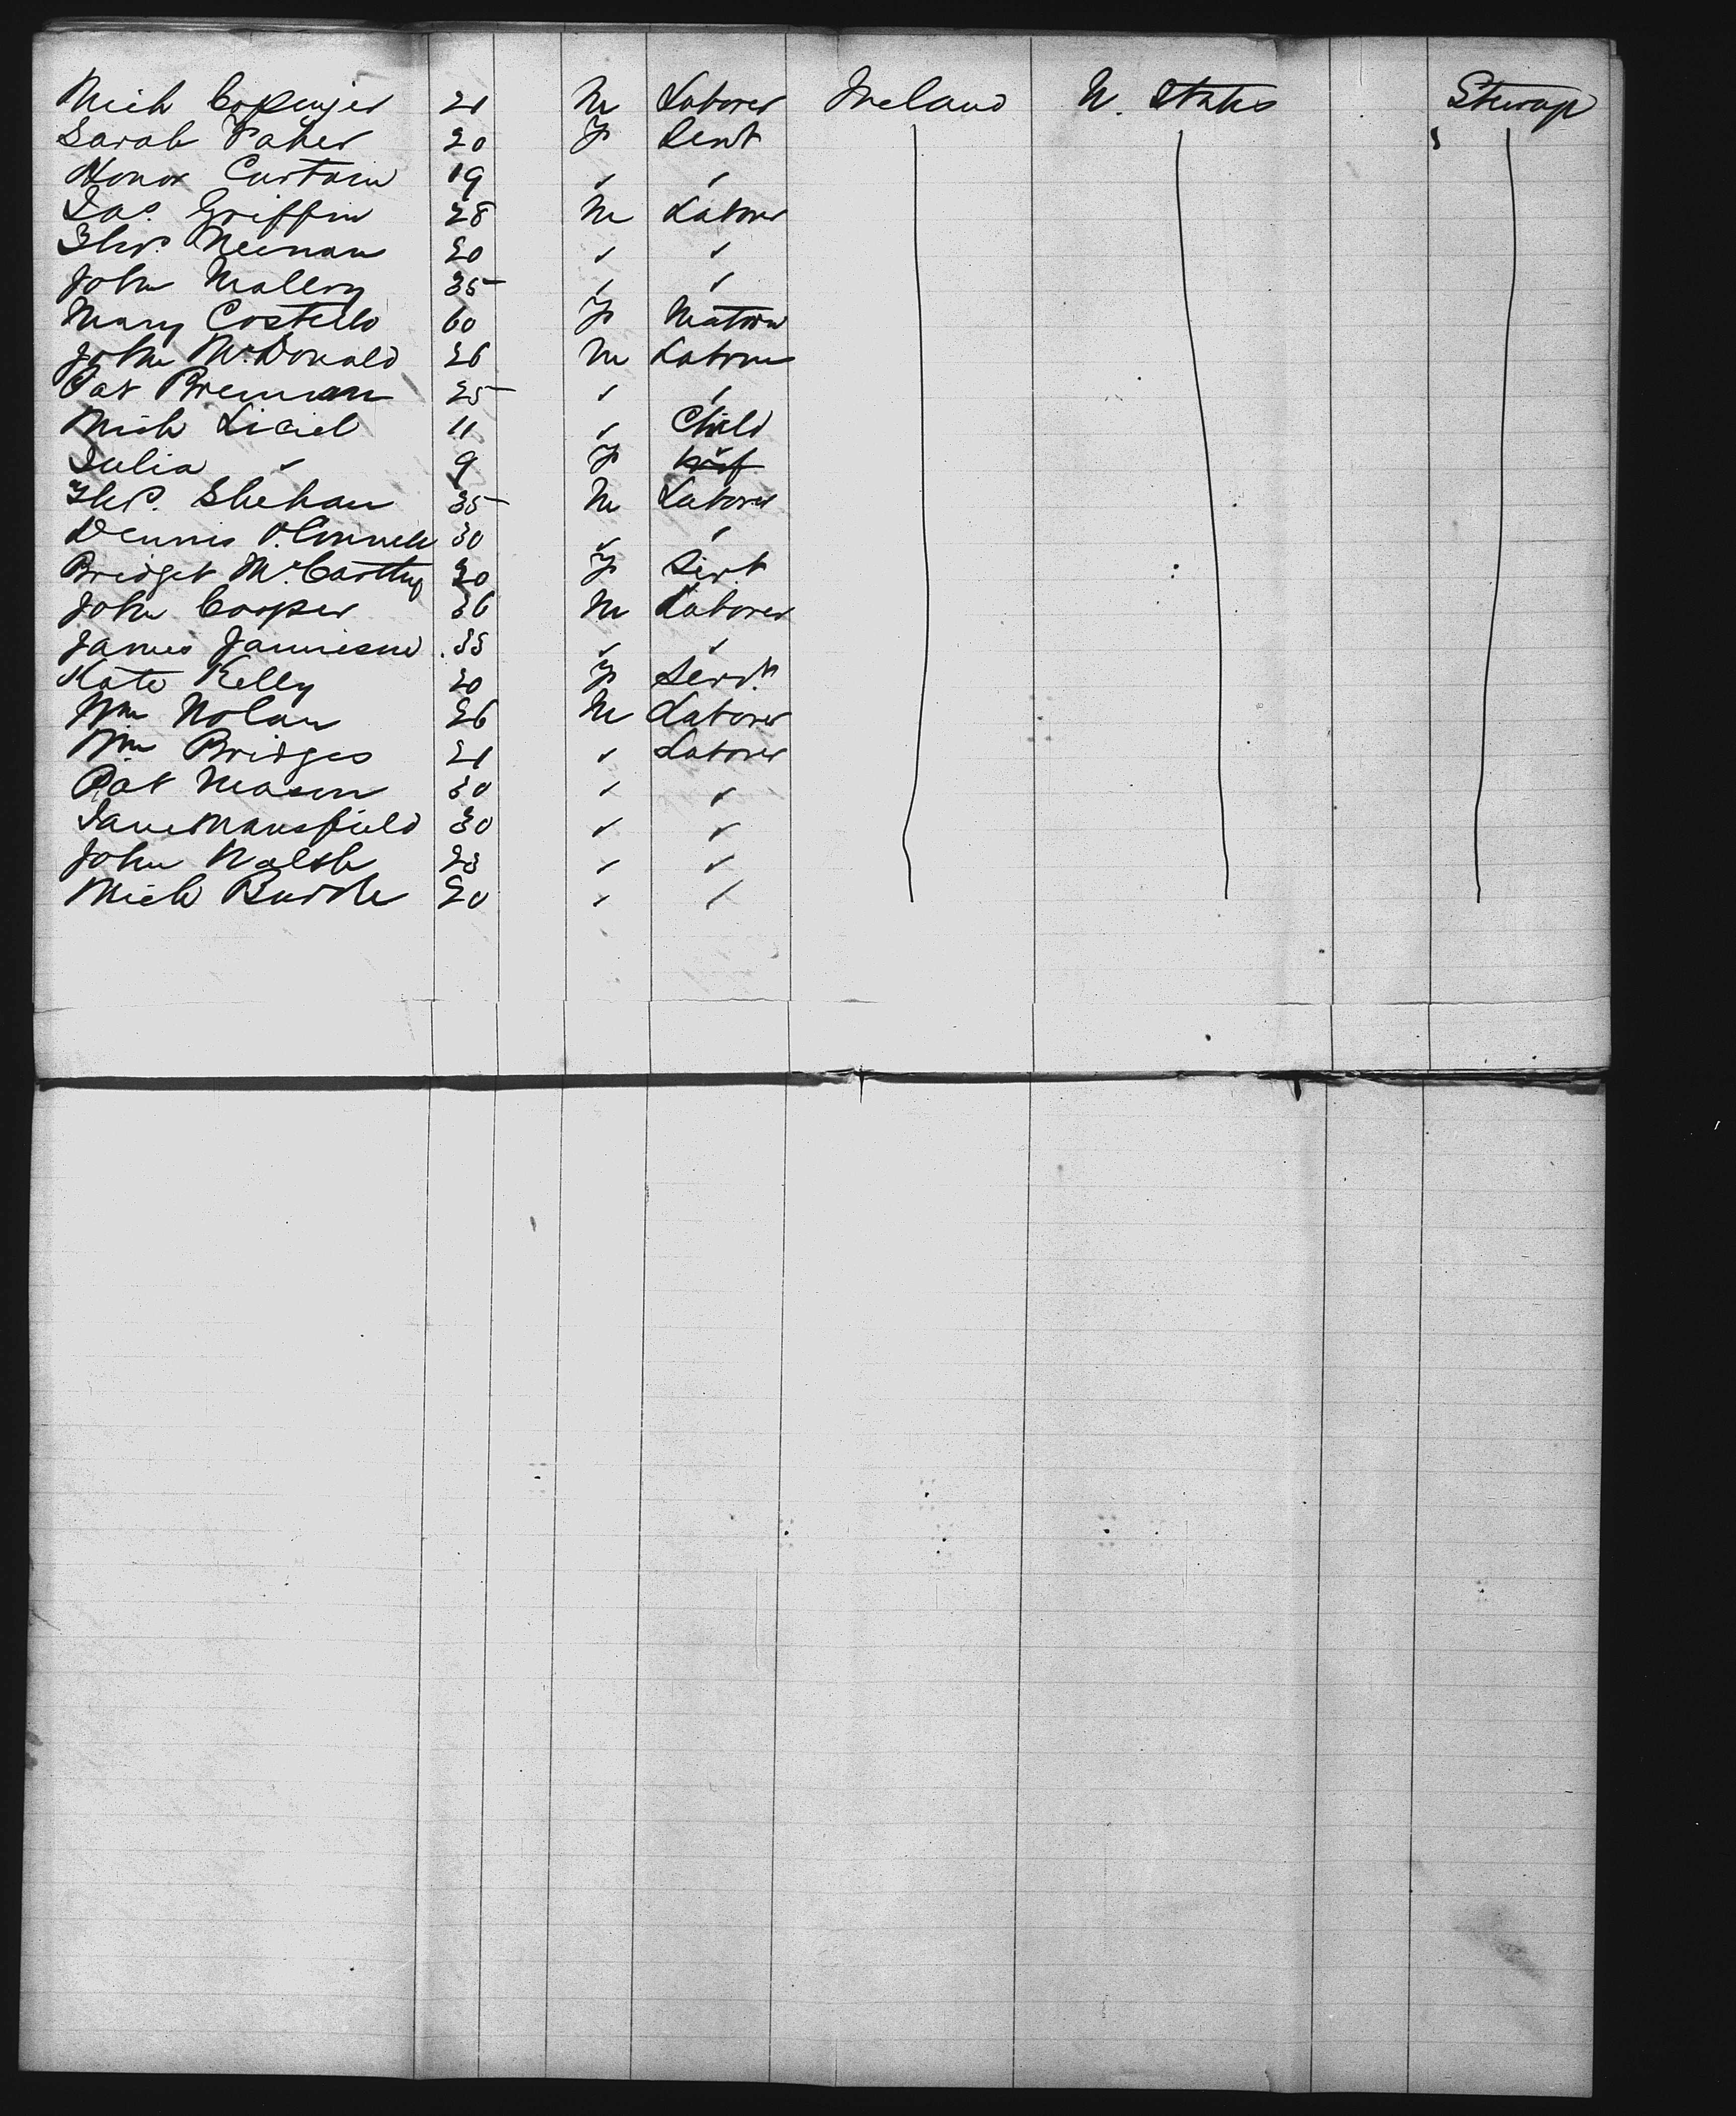 Mich Copenger 21 M Laborer Ireland U. States Steerage
Sarah Faher 20 F Sert
Honor Curtain 19 " "
Jas. Griffin 28 M Laborer
Thos. Neenan 20 " "
John Mallery 35 " "
Mary Costello 60 F Matron
John McDonald 26 M Laborer
Pat Brennan 25 " "
Mich 11 " Child
Julia " 9 F
Thos. Shehan 35 M Laborer
Dennis O'Connell 30 " "
Bridget McCarthy 20 F Sert
John Cooper 36 M Laborer
James Jamieson 35 " "
Kate Kelly 20 F Servt.
Wm Nolan 26 M Laborer
Wm Bridges 21 " Laborer
Pat Mason 30 " "
Jane Mansfield 30 " "
John Walsh 23 " "
Mich Burke 20 " "